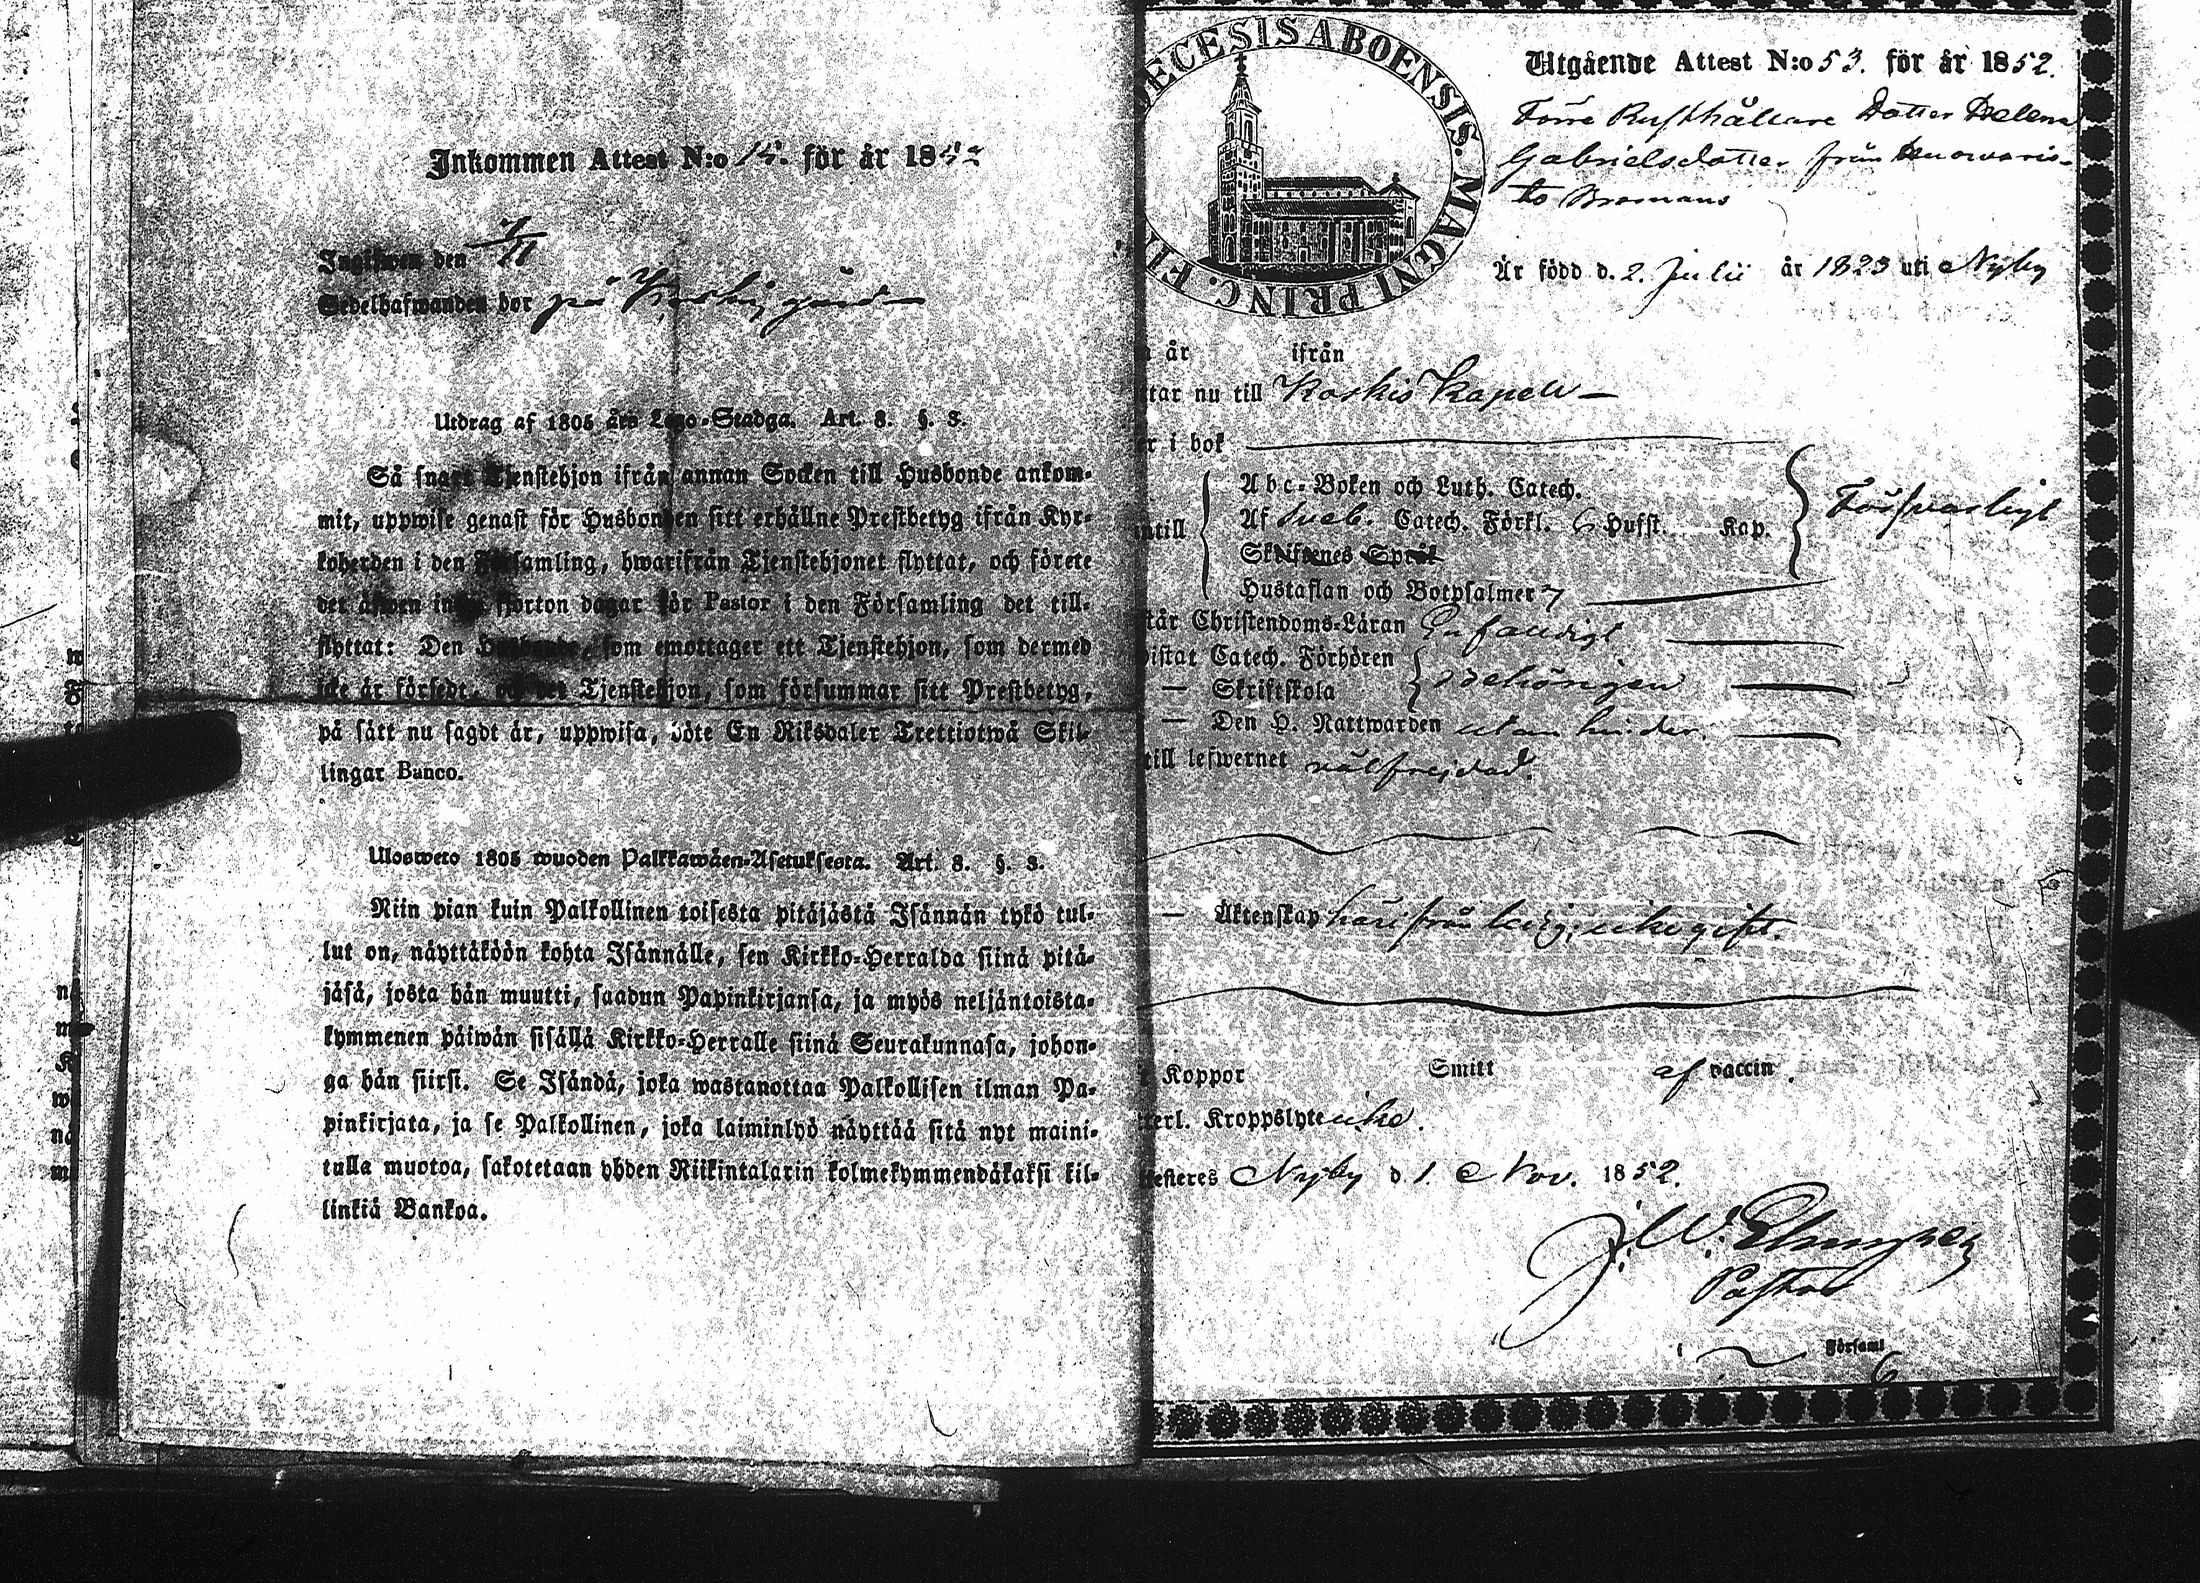 Inkommen Attest N:o 15. för år 1852
Ingifwen den 7/11
Sedelhafwanden bor på
Utdrag af 1805 års Lego-Stadga. Art. 8. §. 3.
Så snart Tjenstehjon ifrån annan Socken till Husbonde ankom-
mit, uppwise genast för Husbonden sitt erhållne Prestbetyg ifrån Kyr-
koherden i den Församling, hwarifrån Tjenstehjonet flyttat, och förete
det äfwen inom fjorton dagar för Pastor i den Församling det till-
flyttat: Den Husbonde, som emottager ett Tjenstehjon, som dermed
icke är försedt, och det Tjenstehjon, som försummar sitt Prestbetyg,
på sätt nu sagdt är, uppwisa, böte En Riksdaler Trettiotwå Skil-
lingar Banco.
Ulosweto 1805 wuoden Palkkawäen-Asetuksesta. Art. 8. §. 3.
Niin pian kuin Palkollinen toisesta pitäjästä Isännän tykö tul-
lut on, näyttäköön kohta Isännälle, sen Kirkko-Herralda siinä pitä-
jäsä, josta hän muutti, saadun Papinkirjansa, ja myös neljäntoista-
kymmenen päiwän sisällä Kirkko-Herralle siinä Seurakunnasa, johon-
ga hän siirsi. Se Isändä, joka wastanottaa Palkollisen ilman Pa-
pinkirjata, ja se Palkollinen, joka laiminlyö näyttää sitä nyt maini-
tulla muotoa, sakotetaan yhden Riikintalarin kolmekymmendäkaksi kil-
linkiä Bankoa.
ECESIS ABOENSIS. MAGNI PRINC. FI
Utgående Attest N:o 53. för år 1852.
Förre Rusthållare Dotter Helena
Gabrielsdotter från
to Bromans
Är född d. 2. Julii år 1823 uti Nyby
år ifrån
tar nu till Koskis Kapell
r i bok
ntill
Abc-Boken och Luth. Catech.
Af Sveb. Catech. Förkl. 6 Hufst. Kap.
Försvarligt
Skriftenes Språk
Hustaflan och Botpsalmer 7
tår Christendoms-Läran Enfaldigt
istat Catech. Förhören
— Skriftskola
behörigen
— Den H. Nattwarden utan hinder.
till lefwernet välfrejdad.
— Äktenskap härifrån ledig; icke gift.
Koppor Smitt af vaccin.
erl. Kroppslyte icke.
testeres Nyby d 1. Nov. 1852.
J. W.
Pastor
i Församl
6